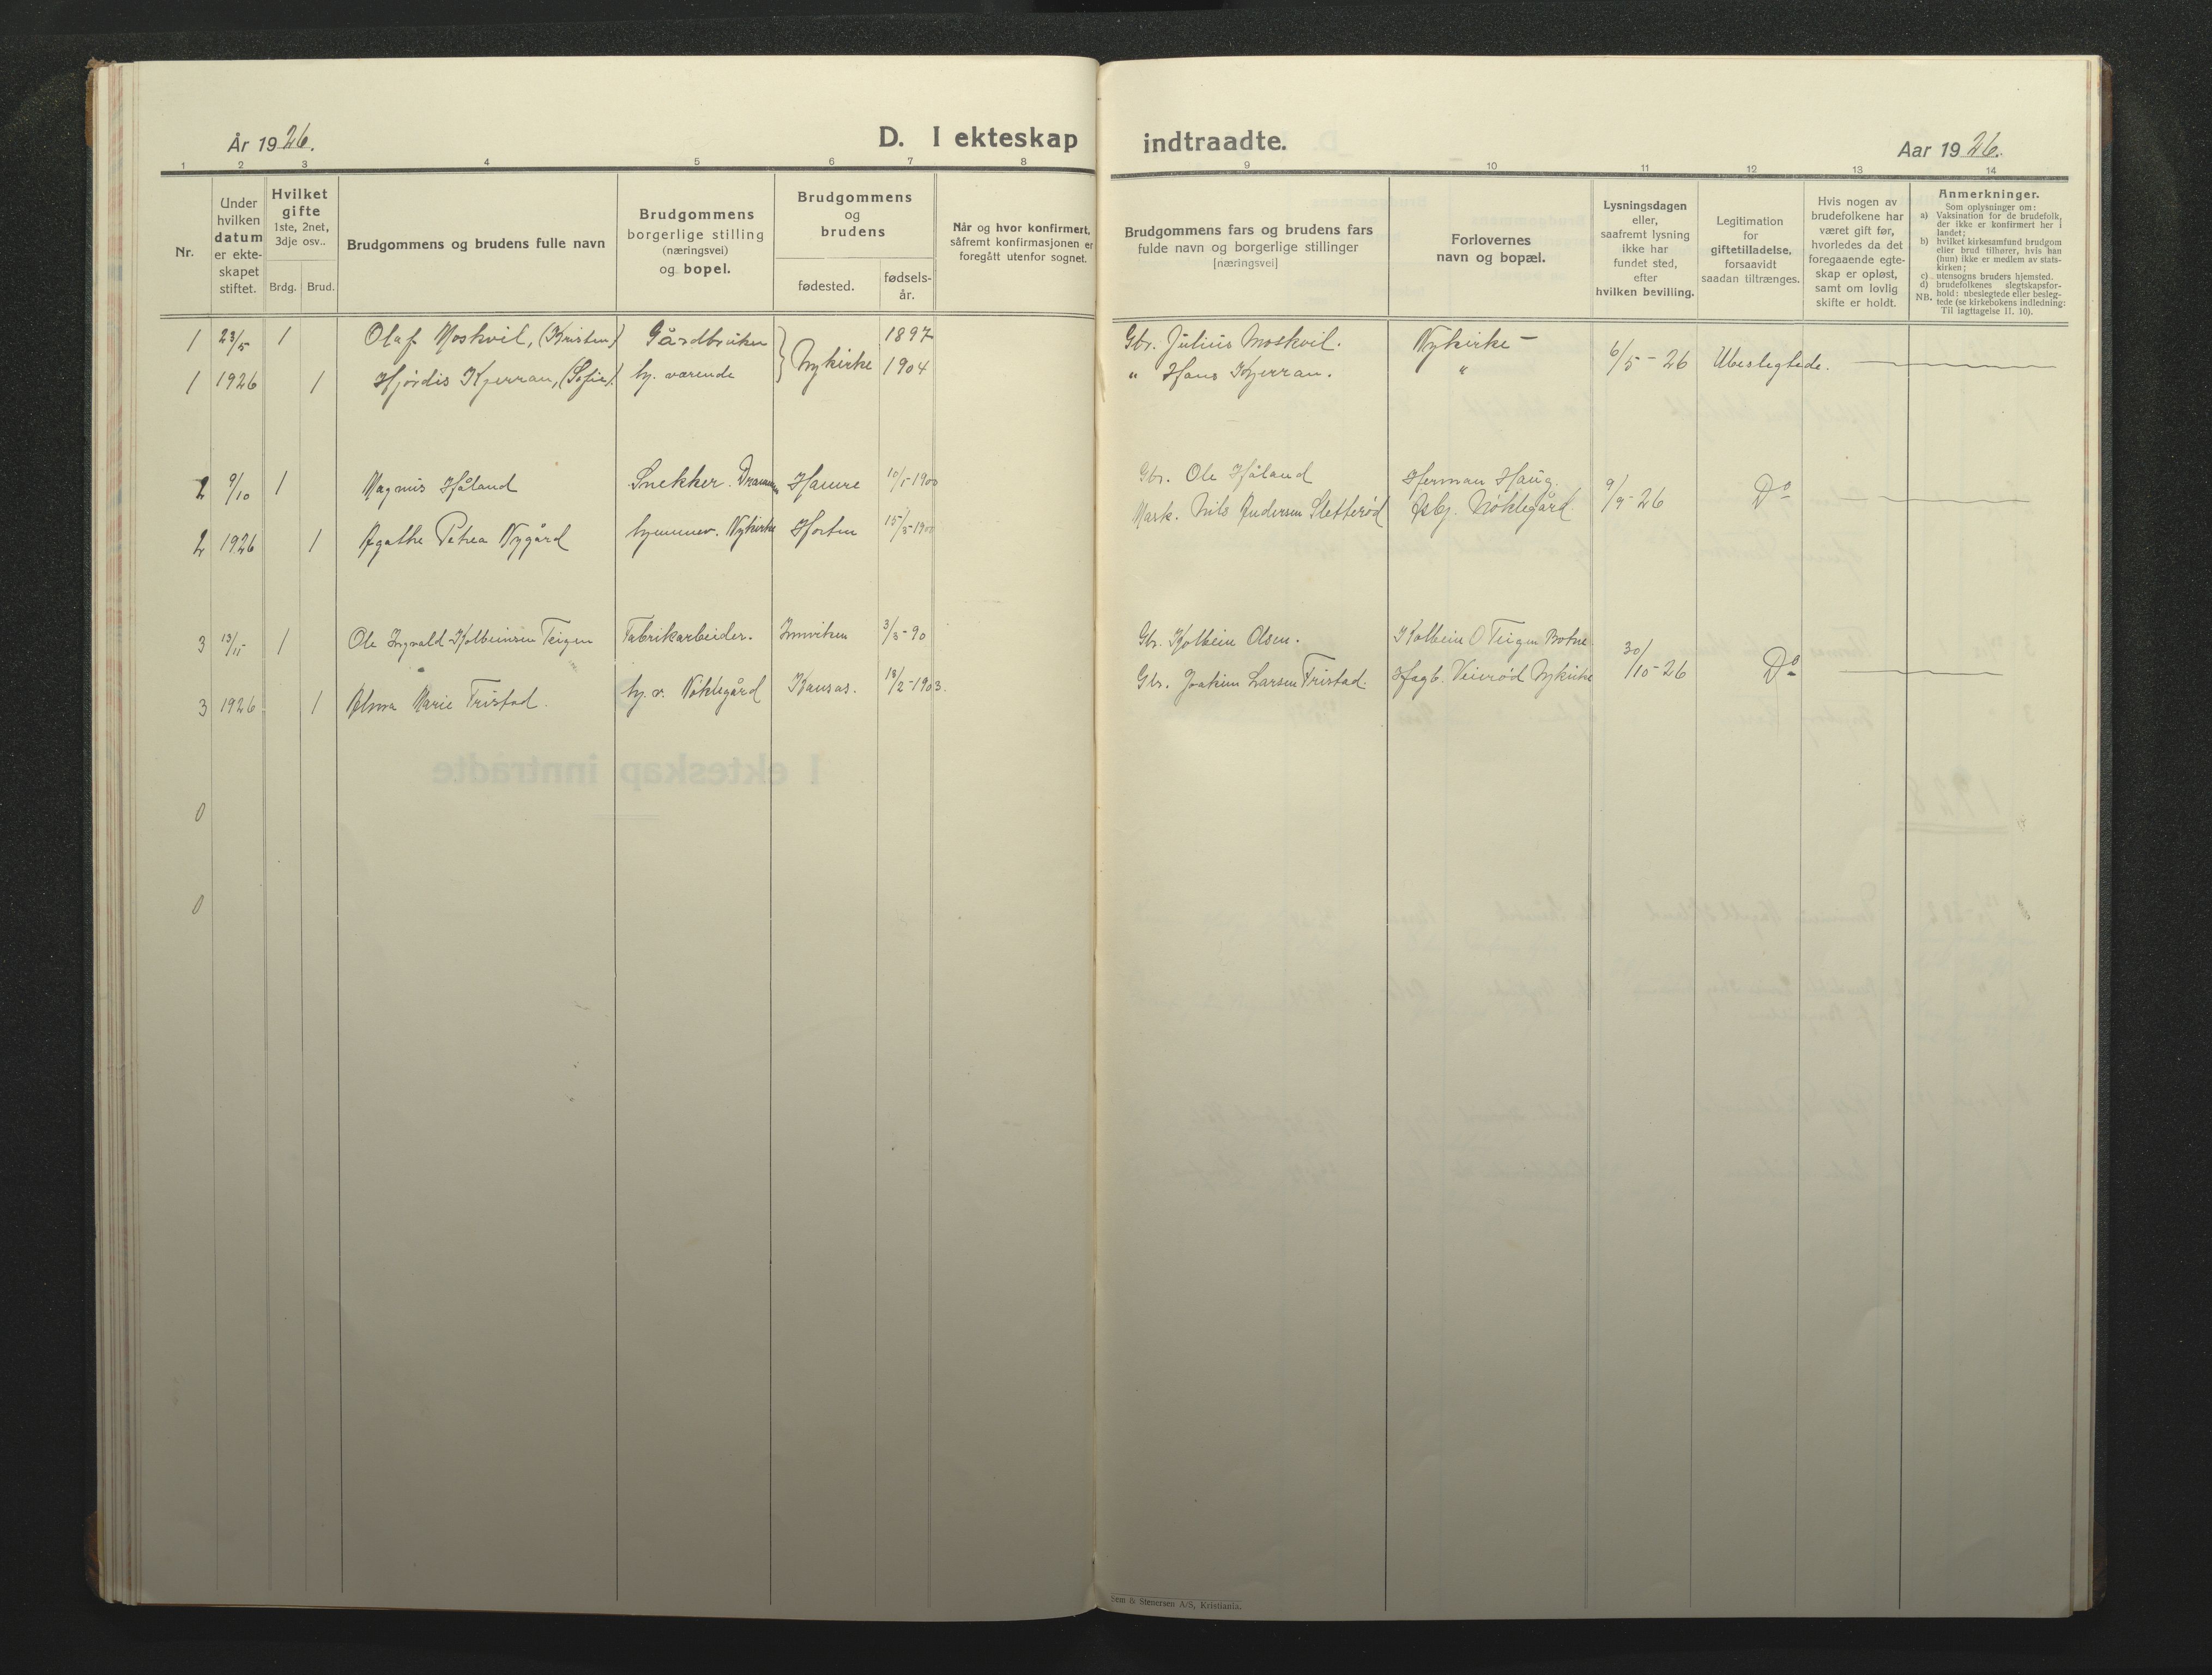 År 1926.
D. I ekteskap indtraadte.
Aar 1926.
1 2 3 4 5 6 7 8 9 10 11 12 13 14
Nr.
Under
hvilken
datum
er ekte-
skapet
stiftet.
Hvilket
gifte
1ste, 2net,
3dje osv..
Brdg. Brud.
Brudgommens og brudens fulle navn
Brudgommens
borgerlige stilling
(næringsvei)
og bopel.
Brudgommens
og
brudens
fødested.
fødsels-
år.
Når og hvor konfirmert,
såfremt konfirmasjonen er
foregått utenfor sognet.
Brudgommens fars og brudens fars
fulde navn og borgerlige stillinger
[næringsvei]
Forlovernes
navn og bopæl.
Lysningsdagen
eller,
saafremt lysning
ikke har
fundet sted,
efter
hvilken bevilling.
Legitimation
for
giftetilladelse,
forsaavidt
saadan tiltrænges.
Hvis nogen av
brudefolkene har
været gift før,
hvorledes da det
foregaaende egte-
skap er opløst,
samt om lovlig
skifte er holdt.
Anmerkninger.
Som oplysninger om:
a) Vaksination for de brudefolk,
der ikke er konfirmert her i
landet;
b) hvilket kirkesamfund brudgom
eller brud tilhører, hvis han
(hun) ikke er medlem av stats-
kirken;
c) utensogns bruders hjemsted.
d) brudefolkenes slegtskapsfor-
hold: ubeslegtede eller besleg-
NB. tede (se kirkebokens indledning:
Til iagttagelse II. 10).
1 23/5 1 Olaf Moskvil, (Kristen) Gårdbruker Nykirke 1897 Gbr. Julius Moskvil. Nykirke – 6/5 - 26 Ubeslegtede.
1 1926 1 Hjørdis Kjerran, (Sofie). hj. værende 1904 " Hans Kjerran. "
2 9/10 1 Magnus Håland Snekker. Drammen Hamre 10/5-1900 Gbr. Ole Håland Herman Haug. 9/9-26 Do
2 1926 1 Agathe Petrea Nygård hjemmev. Nykirke Horten 15/3-1900 Mark. Nils Andersen Sletterød Asbj. Nøklegård
3 13/11 1 Ole Ingvald Kolbeinsen Teigen Fabrikarbeider. Innviken 3/3-90 Gbr. Kolbein Olsen. Kolbein O Teigen Botne 30/10-26 Do
3 1926 1 Alma Marie Tristad. hj. v. Nøklegård Kansas. 18/2-1903. Gbr. Joakim Larsen Tristad. Hagb. Veierød Nykirke
0
0
Sem & Stenersen A/S, Kristiania.